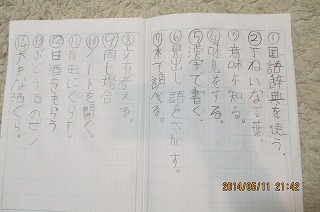 ①国語辞典を使う。
②ていねいな言葉
③意味を知る。
④味見をする。
⑤漢字で書く。
⑥見出し語をさがす。
⑦本で調べる。
⑧文を考える。
⑨同じ場合
⑩ノートを開く。
⑪自由にくらす。
⑫甘酒をもらう
⑬ぶどう酒のビン
⑭大きな酒ぐら。
2014/05/11 21:42